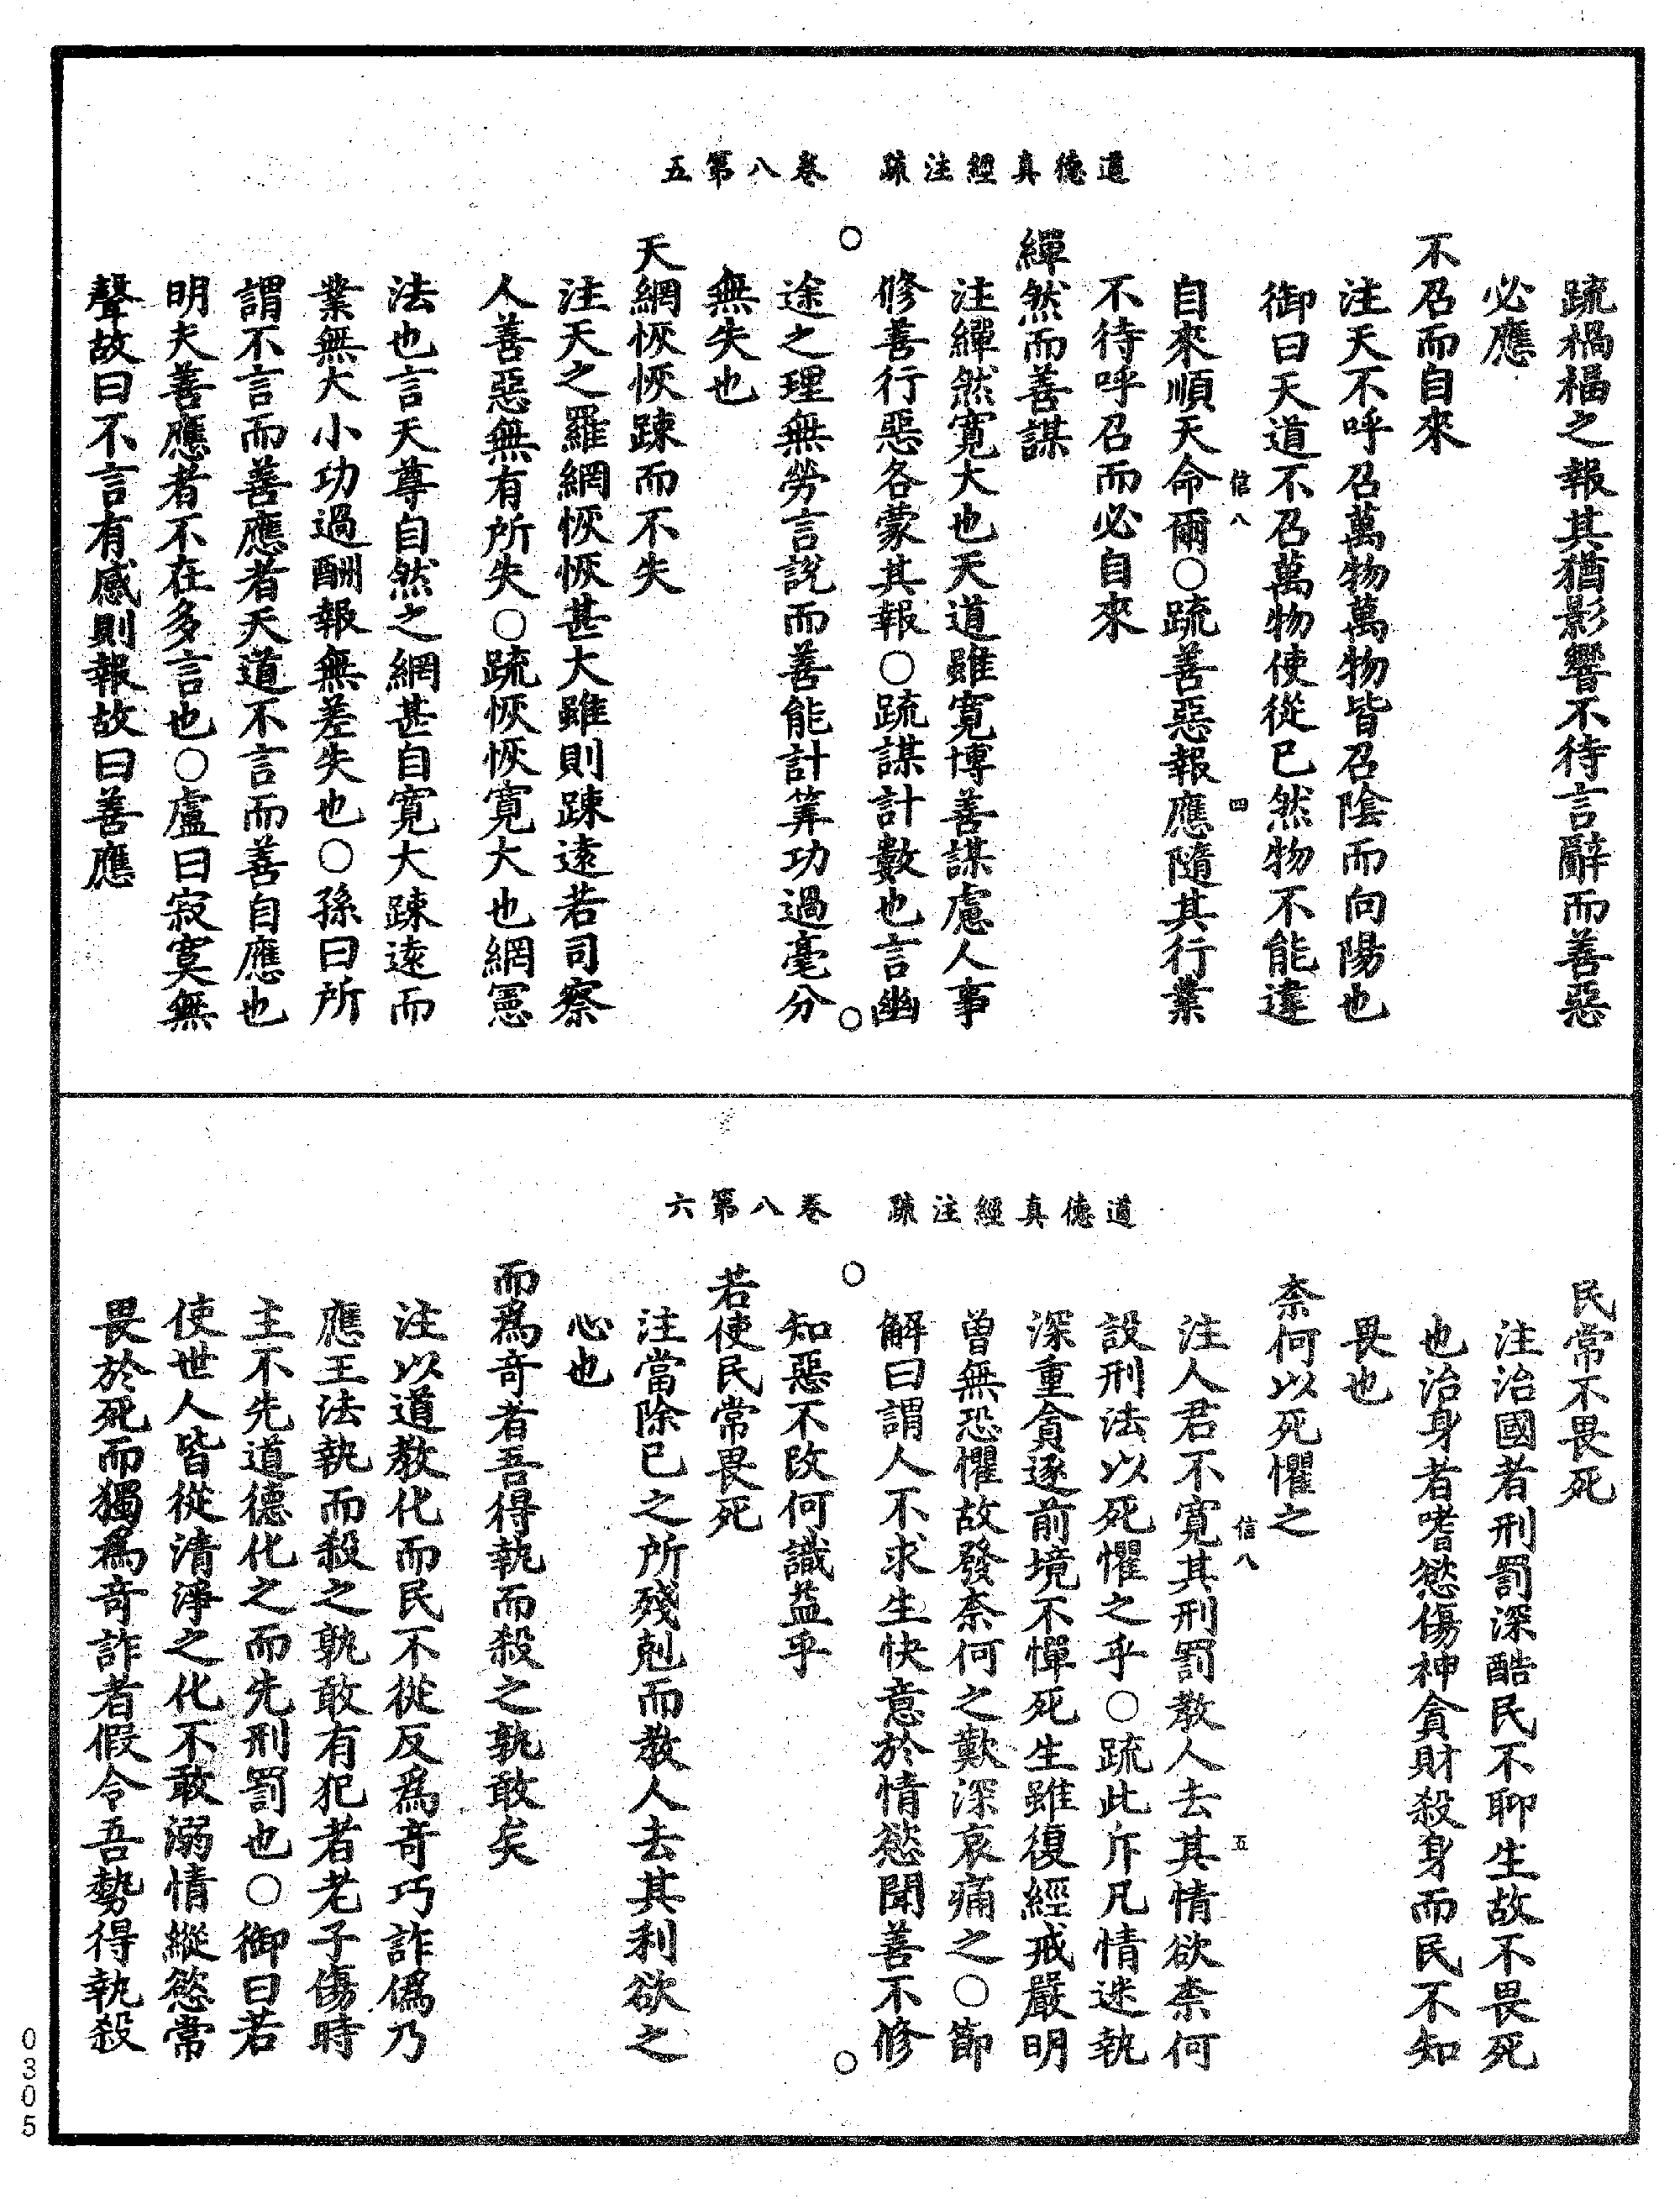 道德真經注疏　卷八第五
疏禍福之報其猶影響不待言辭而善惡
必應
不召而自來
注天不呼召萬物萬物皆召陰而向陽也
御曰天道不召萬物使從已然物不能違
信八　四
自來順天命爾○疏善惡報應隨其行業
不待呼召而必自來
繟然而善謀
注繟然寬大也天道雖寬博善謀慮人事
修善行惡各蒙其報○疏謀計數也言幽
途之理無勞言說而善能計筭功過毫分
無失也
天網恢恢踈而不失
注天之羅網恢恢甚大雖則踈遠若司察
人善惡無有所失○疏恢恢寬大也網憲
法也言天尊自然之網甚自寬大踈遠而
業無大小功過酬報無差失也○孫曰所
謂不言而善應者天道不言而善自應也
明夫善應者不在多言也○盧曰寂寞無
聲故曰不言有感則報故曰善應
道德真經注疏　卷八第六
民常不畏死
注治國者刑罰深酷民不聊生故不畏死
也治身者嗜慾傷神貪財殺身而民不知
畏也
奈何以死懼之
信八　五
注人君不寬其刑罰教人去其情欲柰何
設刑法以死懼之乎○疏此斥凡情迷執
深重貪逐前境不憚死生雖復經戒嚴明
曾無恐懼故發柰何之歎深哀痛之○節
解曰謂人不求生快意於情慾聞善不修
知惡不改何識益乎
若使民常畏死
注當除已之所殘剋而教人去其利欲之
心也
而爲奇者吾得執而殺之孰敢矣
注以道教化而民不從反爲奇巧詐僞乃
應王法執而殺之孰敢有犯者老子傷時
主不先道德化之而先刑罰也○御曰若
使世人皆從清淨之化不敢溺情縱慾常
畏於死而獨爲奇詐者假令吾勢得執殺
0305